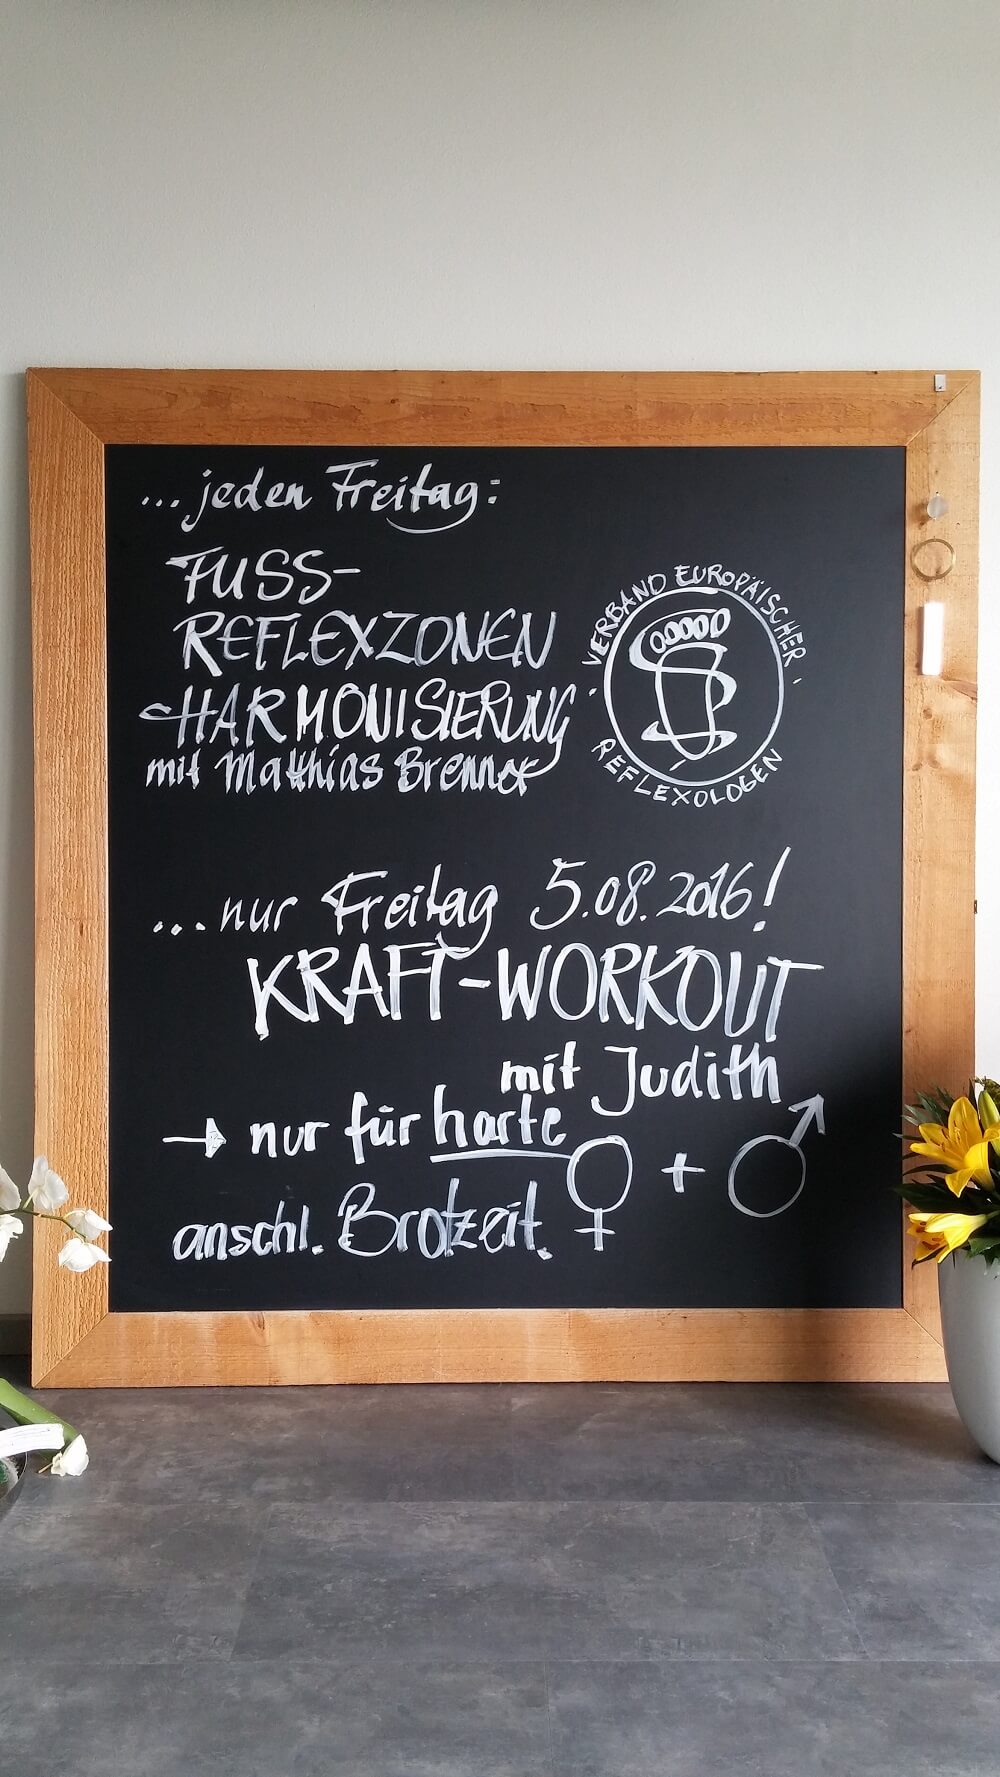 ...jeden Freitag:
FUSS-
REFLEXZONEN
-HARMONISIERUNG
mit Matthias Brenner
· VERBAND EUROPÄISCHER ·
REFLEXOLOGEN
...nur Freitag 5.08.2016!
KRAFT-WORKOUT
mit Judith
→ nur für harte ♀ + ♂
anschl. Brotzeit.